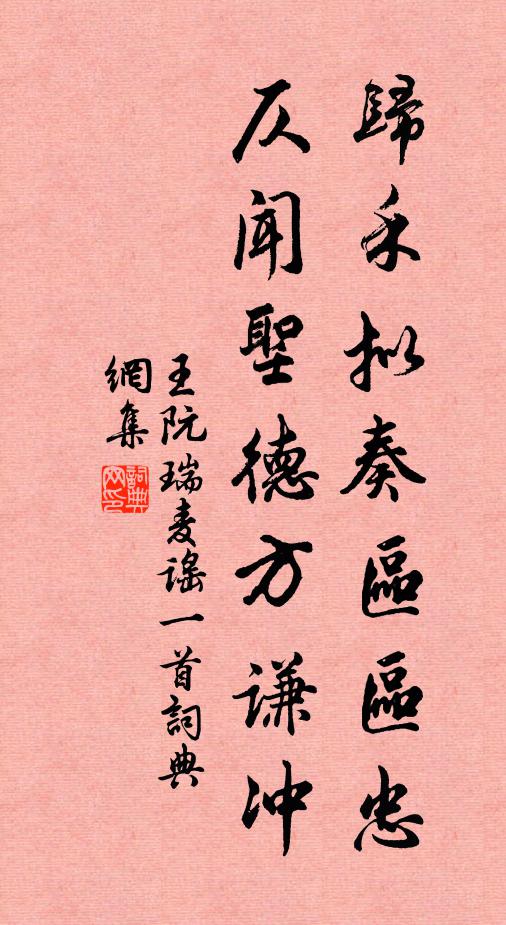 歸禾拟奏區區忠
仄聞聖德方谦冲
王阮瑞麦謠一首詞典
網集
詞典
网印